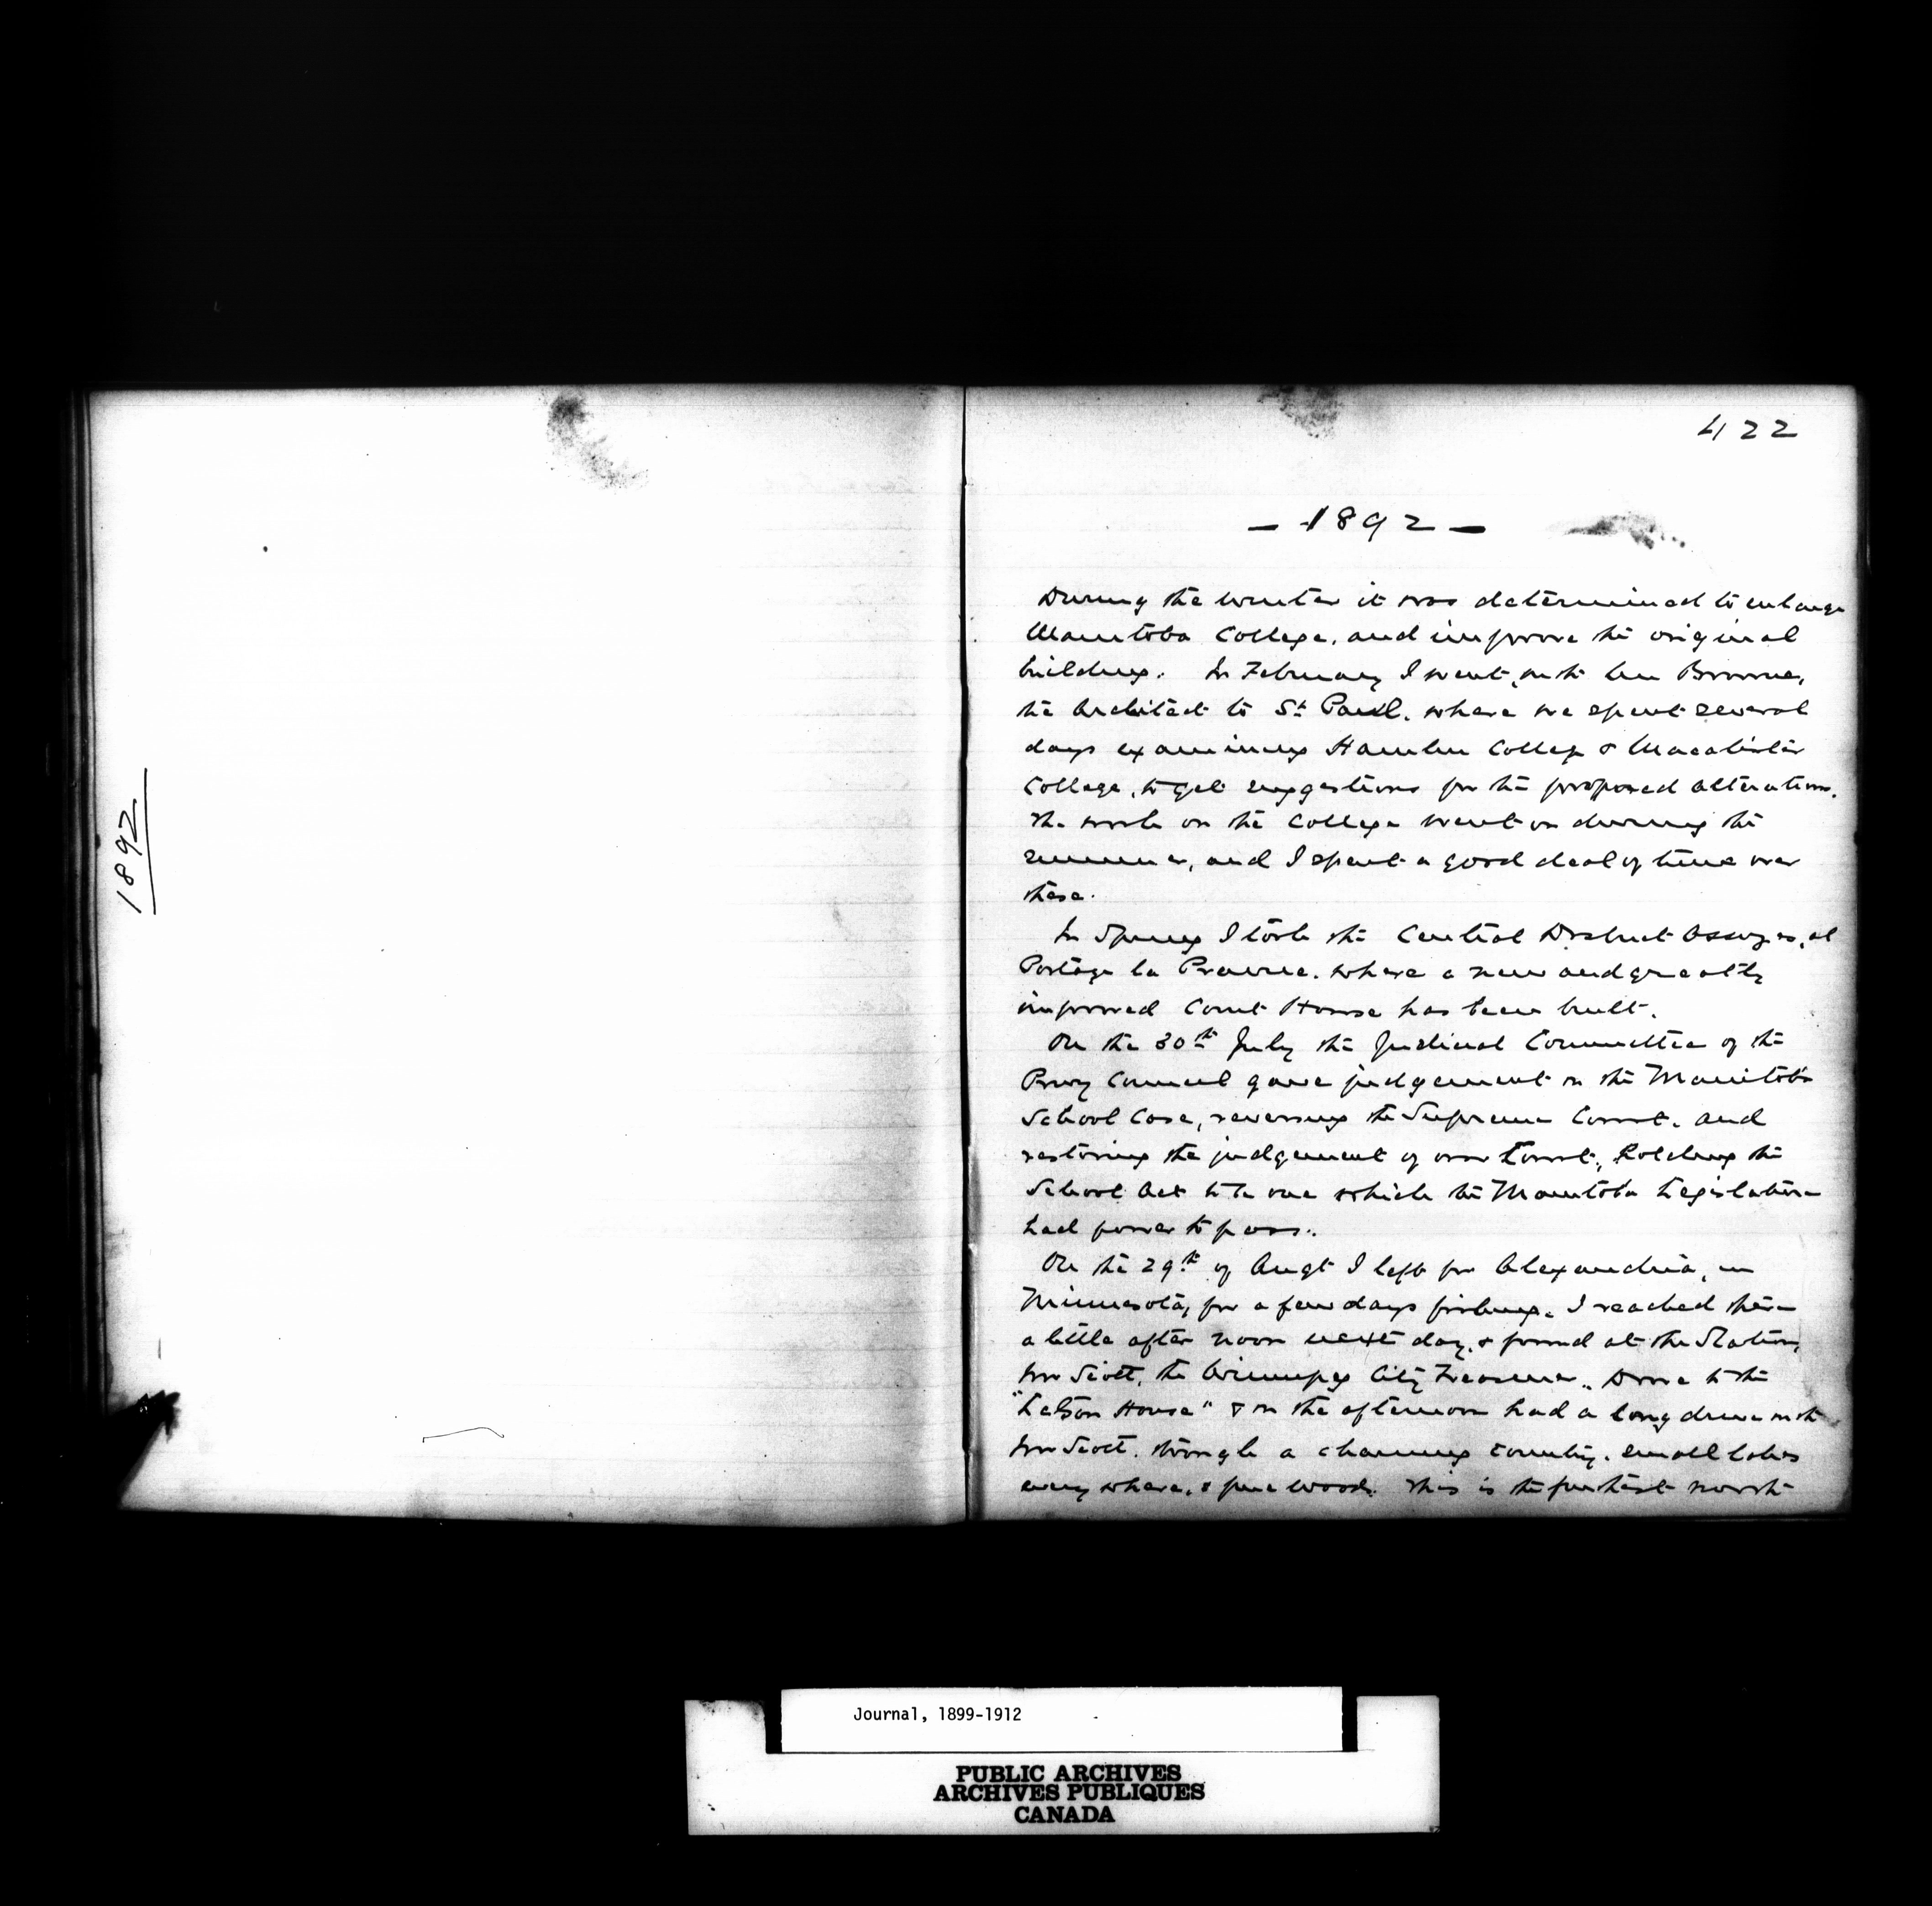 1892
422
- 1892 -
During the winter it was determined to enlarge
Manitoba College, and improve the original
building. In February I went, with Mr Browne,
the Architect to St Paul, where we spent several
days examining Hamlin College & Macalister
College, to get suggestions for the proposed alterations.
The work on the College went on during the
summer, and I spent a good deal of time over
these.
In Spring I took the Central District Assizes, at
Portage la Prairie, where a new and greatly
improved Court House has been built.
On the 30th July the Judicial Committee of the
Privy Council gave judgement in the Manitoba
School Case, reversing the Supreme Court, and
restoring the judgement of our Court, holding the
School Act to be one which the Manitoba Legislature
had power to pass.
On the 29th of Augt I left for Alexandria, in
Minnesota, for a few days fishing. I reached there
a little after noon next day, & found at the Station,
Mr Scott, the Winnipeg City Treasurer. Drove to the
"Letson House" & in the afternoon had a long drive with
Mr Scott, through a charming country, small lakes
every where, & fine woods. This is the furthest north
Journal, 1899-1912
PUBLIC ARCHIVES
ARCHIVES PUBLIQUES
CANADA